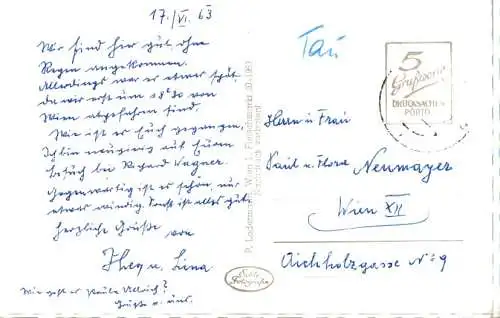 17./VI. 63
Wir sind hier gut ohne
Regen angekommen.
Allerdings war es etwas spät,
da wir erst um 18°30 von
Wien abgefahren sind.
Wie ist es Euch gegangen,
Ich bin neugierig auf Euren
Besuch bei Richard Wagner.
Gegenwärtig ist es schön, nur
etwas windig. Sonst ist alles gut.
Herzliche Grüße von
u. Lina
Wie geht es Paula Ullrich?
Grüße v. uns.
P. Ledermann, Wien I, Fleischmarkt 20-1963
Nachdruck verboten!
Echte
Fotografie
5
Grußworte
DRUCKSACHEN
PORTO
Herrn u. Frau
Paul u. Flora Neumayer
Wien XII
Aichholzgasse No 9